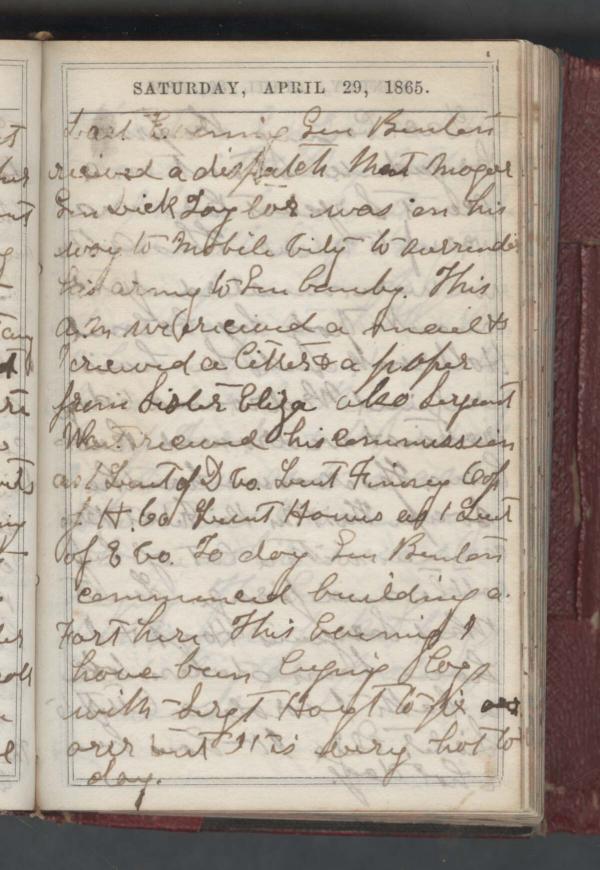 SATURDAY, APRIL 29, 1865.
Last Evening Gen Benton
recieved a dispatch that Mager
Gen Dick Taylor was on his
way to Mobile City to surrender
his army to Gen Canby. This
A.M we recieved a mail &
I recieved a letter & a paper
from Sister Eliza also Sergeant
recieved his commission
as 1 Leut of D Co. Leut Finney Cap
of H. Co. Leut as 1 Leut
of E Co. To day Gen Benton
commenced building a
Fort here This Evening I
have been
with Sergt Hoyt to fix our
but it is very hot to
day.